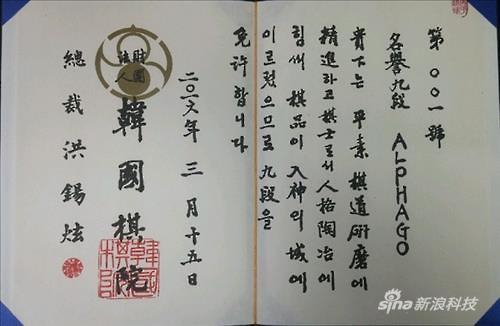 第〇〇一號
名譽九段 ALPHAGO
貴下는 平素 棋道研磨에
精進하고 棋士로서 人格陶冶에
힘써 棋品이 入神의 域에
이르렀으므로 九段을
免許합니다
二〇一六年 三月 十五日
財團
法人
韓國棋院
總裁 洪錫炫
sina新浪科技